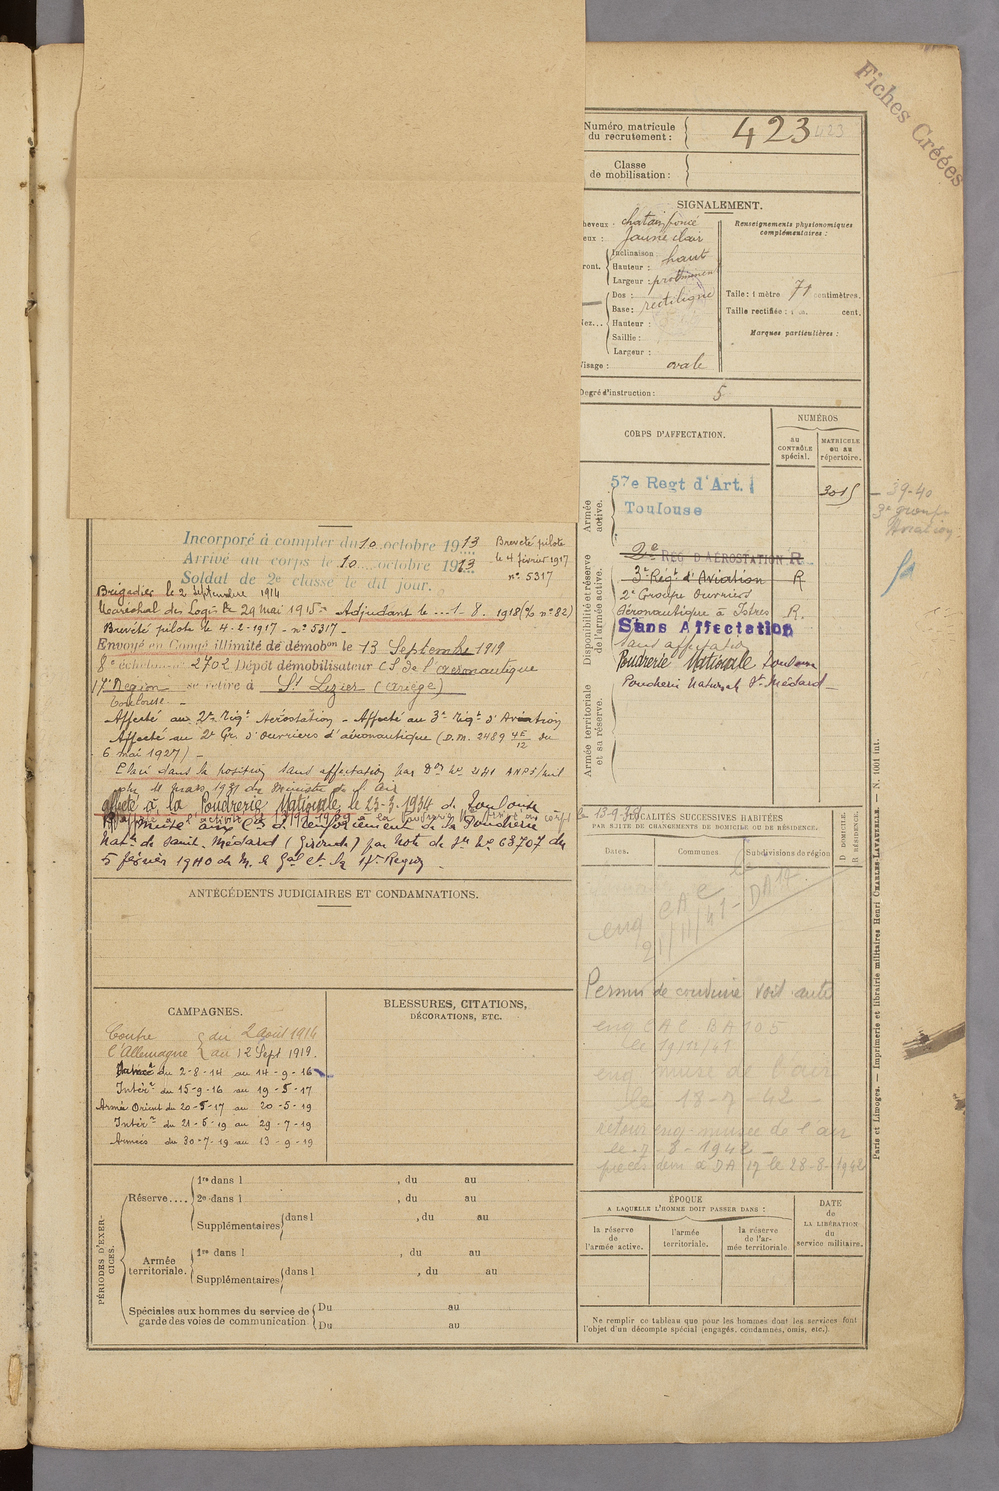 Fiches Créées
Numéro matricule
du recrutement :
423
423
Classe
de mobilisation :
SIGNALEMENT.
heveux : chatain foncé
eux : Jaune clair
ront.
Inclinaison :
Hauteur : haut
Largeur : proéminent
Dos : rectiligne
Base :
Nez...
Hauteur :
Saillie :
Largeur :
isage : ovale
Renseignements physionomiques
complémentaires :
Taille : 1 mètre 71 centimètres.
Taille rectifiée : 1 m. cent.
Marques particulières :
Degré d'instruction : 5
CORPS D'AFFECTATION.
NUMÉROS
AU
CONTRÔLE
spécial.
MATRICULE
OU AU
répertoire.
Armée
active.
57e Regt d'Art.
Toulouse
3015
39-40
Disponibilité et réserve
de l'armée active.
2e REG D'AÉROSTATION R
3e Régt d'Aviation R
2e Groupe Ouvriers
Aéronautique à Istres R.
Sans Affectation
Sans affectation
Poudrerie Nationale Toulouse
Poudrerie National St Médard
Armée territoriale
et sa réserve.
Incorporé à compter du 10 octobre 1913
Arrivé au corps le 10 octobre 1913
Soldat de 2e classe le dit jour.
Breveté pilote
le 4 février 1917
n° 5317
Brigadier le 2 Septembre 1914
Maréchal des Logis le 29 mai 1915 - Adjudant le ... 1. 8. 1918 (% n° 82)
Breveté pilote le 4-2-1917 - n° 5317 -
Envoyé en Congé illimité de démobon le 13 Septembre 1919
8e échelon n° 2702 Dépôt démobilisateur CS de l'aéronautique
17e Région se retire à St Lizier (Ariège)
Toulouse -
Affecté au 2e Régt Aérostation - Affecté au 3e Régt d'Aviation
Affecté au 2e Gr. d'ouvriers d'aéronautique (D.M. 2489 4E/12 du
6 mai 1927) -
Placé dans la position sans affectation par Don No 241
du Ministre de l'air
affecté à la Poudrerie Nationale le 23-3-1934 de Toulouse
de renforcement de la Poudrerie
Natle de Saint-Médard (Gironde) par Note de No 63707 du
5 février 1940 de M. le Gal Ct la 17e Région
ANTÉCÉDENTS JUDICIAIRES ET CONDAMNATIONS.
LOCALITÉS SUCCESSIVES HABITÉES
PAR SUITE DE CHANGEMENTS DE DOMICILE OU DE RÉSIDENCE.
Dates.
Communes
Subdivisions de région
D. DOMICILE.
R. RÉSIDENCE.
eng CAC
21/11/41 - DA 17
Permis de conduire Voit auto
eng CAC BA 105
le 19/12/41
eng musée de l'air
le 18-7-42 -
retour eng - musée de l'air
le 7-8-1942 -
pièces dem à DA 17 le 28-8-1942
CAMPAGNES.
Contre du 2 août 1914
l'Allemagne au 12 Sept 1919.
du 2-8-14 au 14-9-16
Intérr du 15-9-16 au 19-5-17
Armée Orient du 20-5-17 au 20-5-19
Intérr du 21-5-19 au 29-7-19
Armées du 30-7-19 au 13-9-19
BLESSURES, CITATIONS,
DÉCORATIONS, ETC.
PÉRIODES D'EXER-
CICES.
Réserve....
1re dans l , du au
2e dans l , du au
Supplémentaires dans l , du au
Armée
territoriale.
1re dans l , du au
Supplémentaires dans l , du au
Spéciales aux hommes du service de
garde des voies de communication
Du au
Du au
ÉPOQUE
A LAQUELLE L'HOMME DOIT PASSER DANS :
la réserve
de
l'armée active.
l'armée
territoriale.
la réserve
de l'ar-
mée territoriale
DATE
de
LA LIBÉRATION
du
service militaire.
Ne remplir ce tableau que pour les hommes dont les services font
l'objet d'un décompte spécial (engagés, condamnés, omis, etc.).
Paris et Limoges. — Imprimerie et librairie militaires Henri CHARLES-LAVAUZELLE. — N. 1001 int.